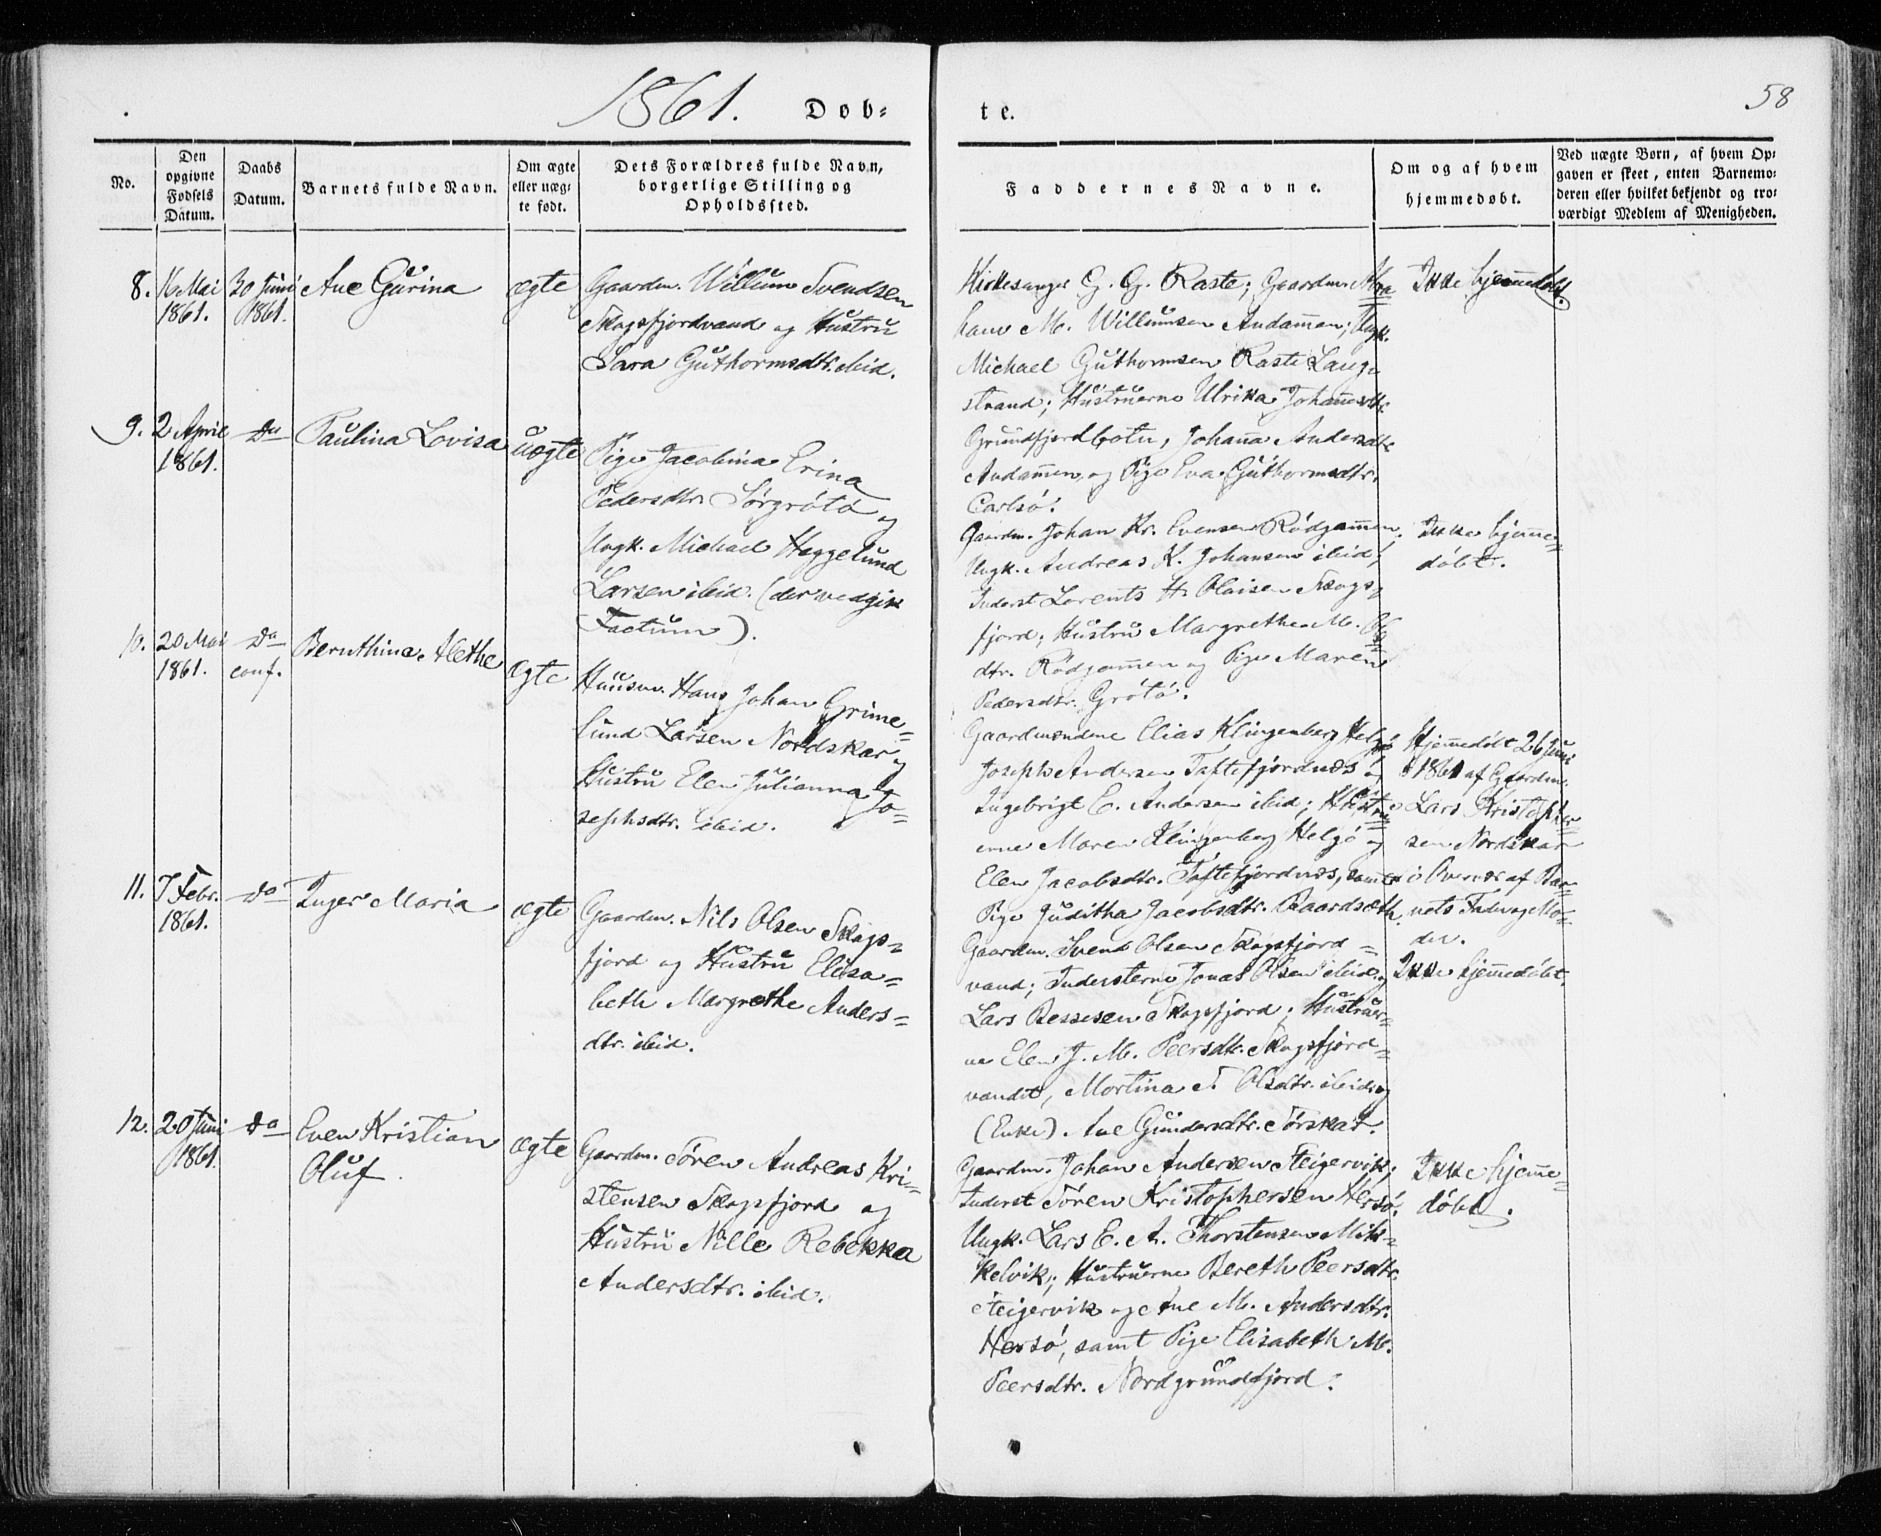 1861.
Døb-
te.
58
No.
Den
opgivne
Fødsels
Datum.
Daabs
Datum.
Barnets fulde Navn.
Om ægte
eller uæg-
te født.
Dets Forældres fulde Navn,
borgerlige Stilling og
Opholdssted.
Faddernes Navne.
Om og af hvem
hjemmedøbt.
Ved uægte Børn, af hvem Op-
gaven er skeet, enten Barnemo-
deren eller hvilket bekjendt og tro-
værdigt Medlem af Menigheden.
8.
16 Mai
1861.
30 Juni
1861.
Ane Gurina
ægte
Gaardm. Willum Svendsen
Skogsfjordvand og Hustru
Sara Guthormsdtr. ibid.
Kirkesanger G. G. Raste; Gaardm. Abra
ham M. Willumsen Andam̄en; Ungk.
Michael Guthormsen Raste Lang-
strand; Hustruerne Ulrika Johan̄esdtr.
Grundfjordbotn, Johan̄a Andersdtr.
Andam̄en og Pige Eva Guthormsdtr.
Carlsö.
Ikke hjem̄edöbt.
9.
2 April
1861.
Do
Paulina Lovisa
uægte
Pige Jacobina Erina
Pedersdtr. Sörgrötö og
Ungk. Michael Heggelund
Larsen ibid. (der vedgik
Factum).
Gaardm. Johan Kr. Evensen Rödgam̄en.
Ungk. Andreas K. Johansen ibid;
Inderst Lorents H. Olaisen Skogs-
fjord; Hustru Margrethe M.
dtr. Rödgam̄en og Pige Maren
Pedersdtr. Grötö.
Ikke hjem̄e-
döbt.
10.
20 Mai
1861.
Do
conf.
Bernthina Alethe
ægte
Huusm. Hans Johan Grime-
lund Larsen Nordskar og
Hustru Elen Julianna Jo-
sephsdtr. ibid.
Gaardmændene Elias Klingenberg Helgö
Joseph Andersen Toftefjordnæs og
Ingebrigt E. Andersen ibid; Hustru-
erne Maren Klingenberg Helgö og
Elen Jacobsdtr. Toftefjordnæs, samt
Pige Juditha Jacobsdtr. Baardseth.
Hjem̄edöbt 26 Juni
1861 af Gaardm.
Lars Kristopher-
sen Nordskar
i Overvær af Bar-
nets Fader og Mo-
der.
11.
7 Febr.
1861.
Do
Inger Maria
ægte
Gaardm. Nils Olsen Skogs-
fjord og Hustru Elisa-
beth Margrethe Anders-
dtr. ibid.
Gaardm. Svend Olsen Skogsfjord-
vand; Inderstene Jonas Olsen ibid og
Lars Bessesen Skogsfjord; Hustruer-
ne Elen J. M. Peersdtr. Skogsfjord-
vandet, Mortina Olsdtr. ibid og
(Enke) Ane Gundersdtr. Törskar.
Ikke hjem̄edöbt.
12.
20 Juni
1861.
Do
Even Kristian
Oluf.
ægte
Gaardm. Sören Andreas Kri-
stensen Skogsfjord og
Hustru Nille Rebekka
Andersdtr. ibid.
Gaardm. Johan Andersen Steigervik;
Inderst Sören Kristophersen Hersö.
Ungk. Lars E. A. Thorstensen Mik-
kelvik; Hustruerne Bereth Peersdtr.
Steigervik og Ane M. Andersdtr.
Hersö, samt Pige Elisabeth M.
Peersdtr. Nordgrundfjord.
Ikke hjem̄e-
döbt.